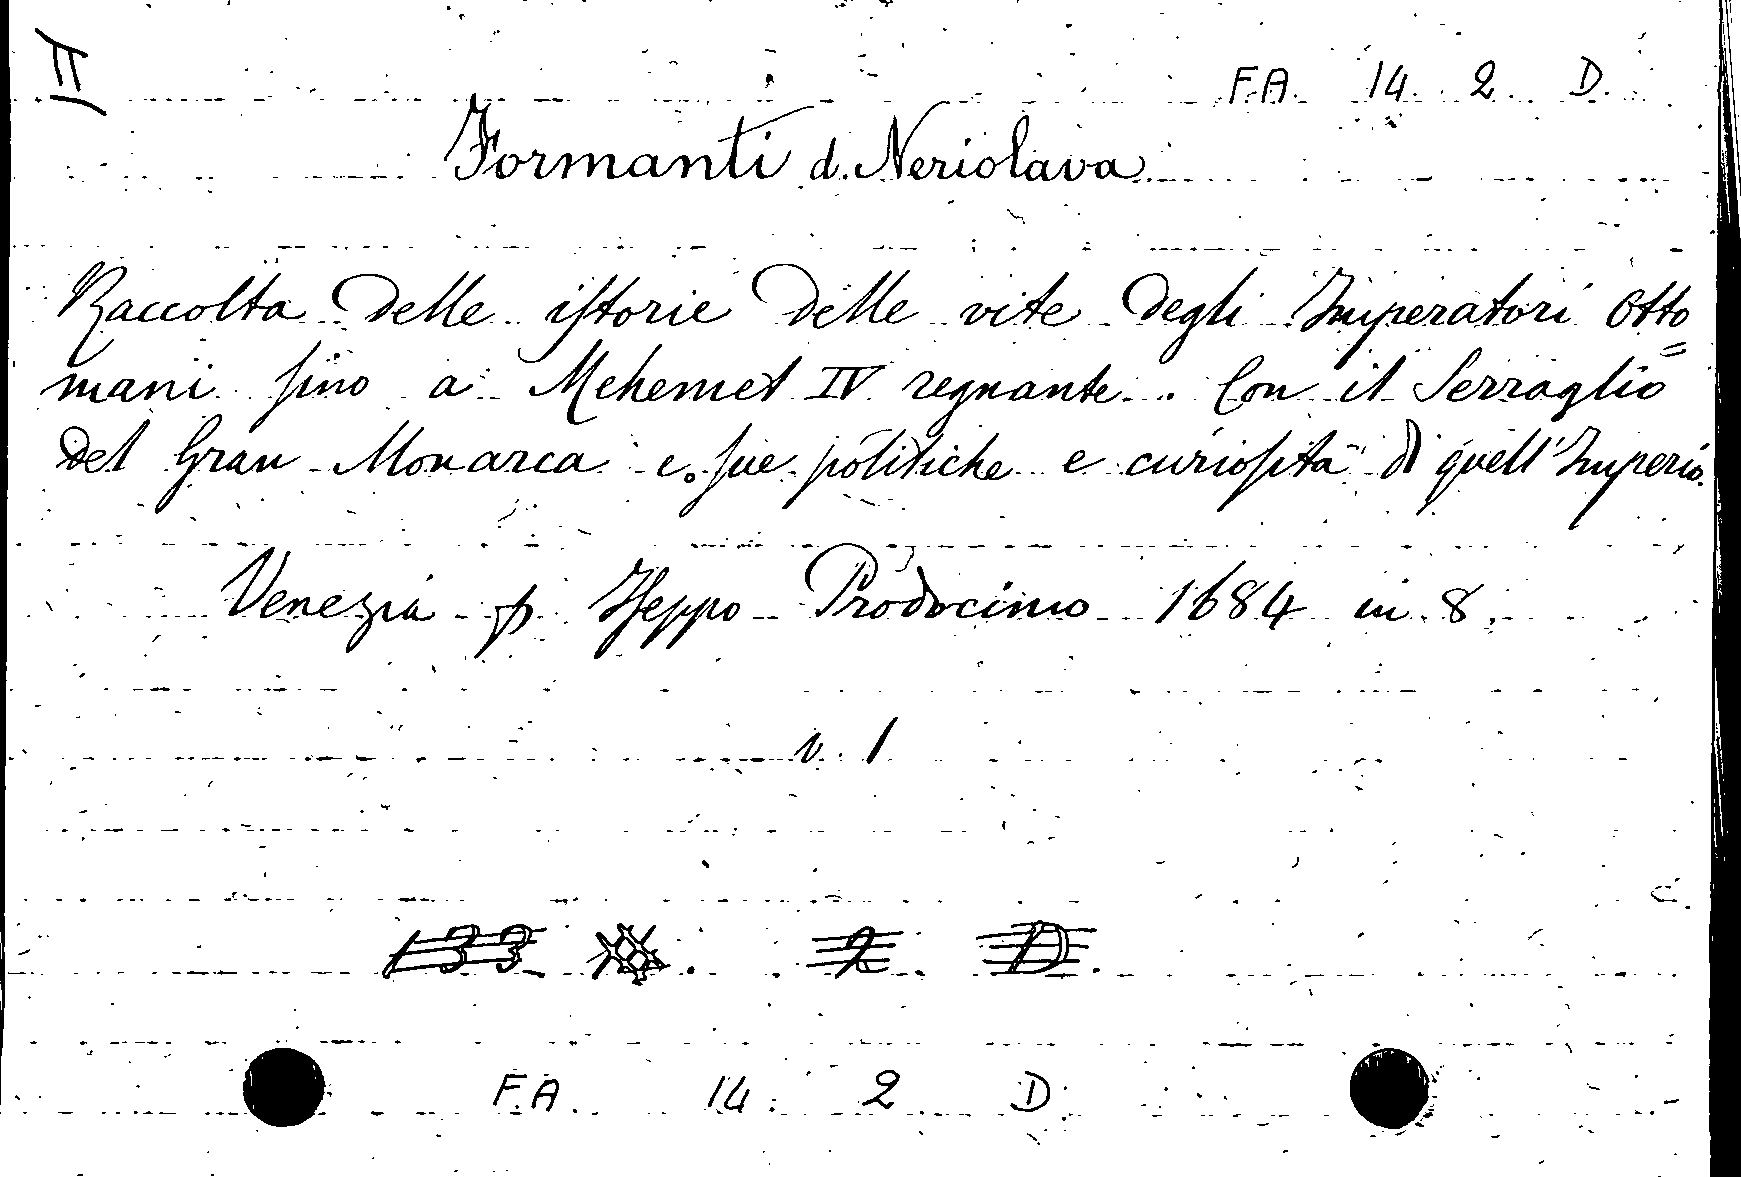 II
F.A. 14. 2. D.
Formanti d. Neriolava
Raccolta delle iſtorie delle vite degli Imperatori Otto=
mani ſino a Mehemet IV regnante. Con il Serraglio
del Gran Monarca e ſue politiche e curioſita di quell'Imperio.
Venezia p Iſeppo Prodocimo 1684 in 8.
v. 1
133 2 D.
F.A. 14. 2 D.